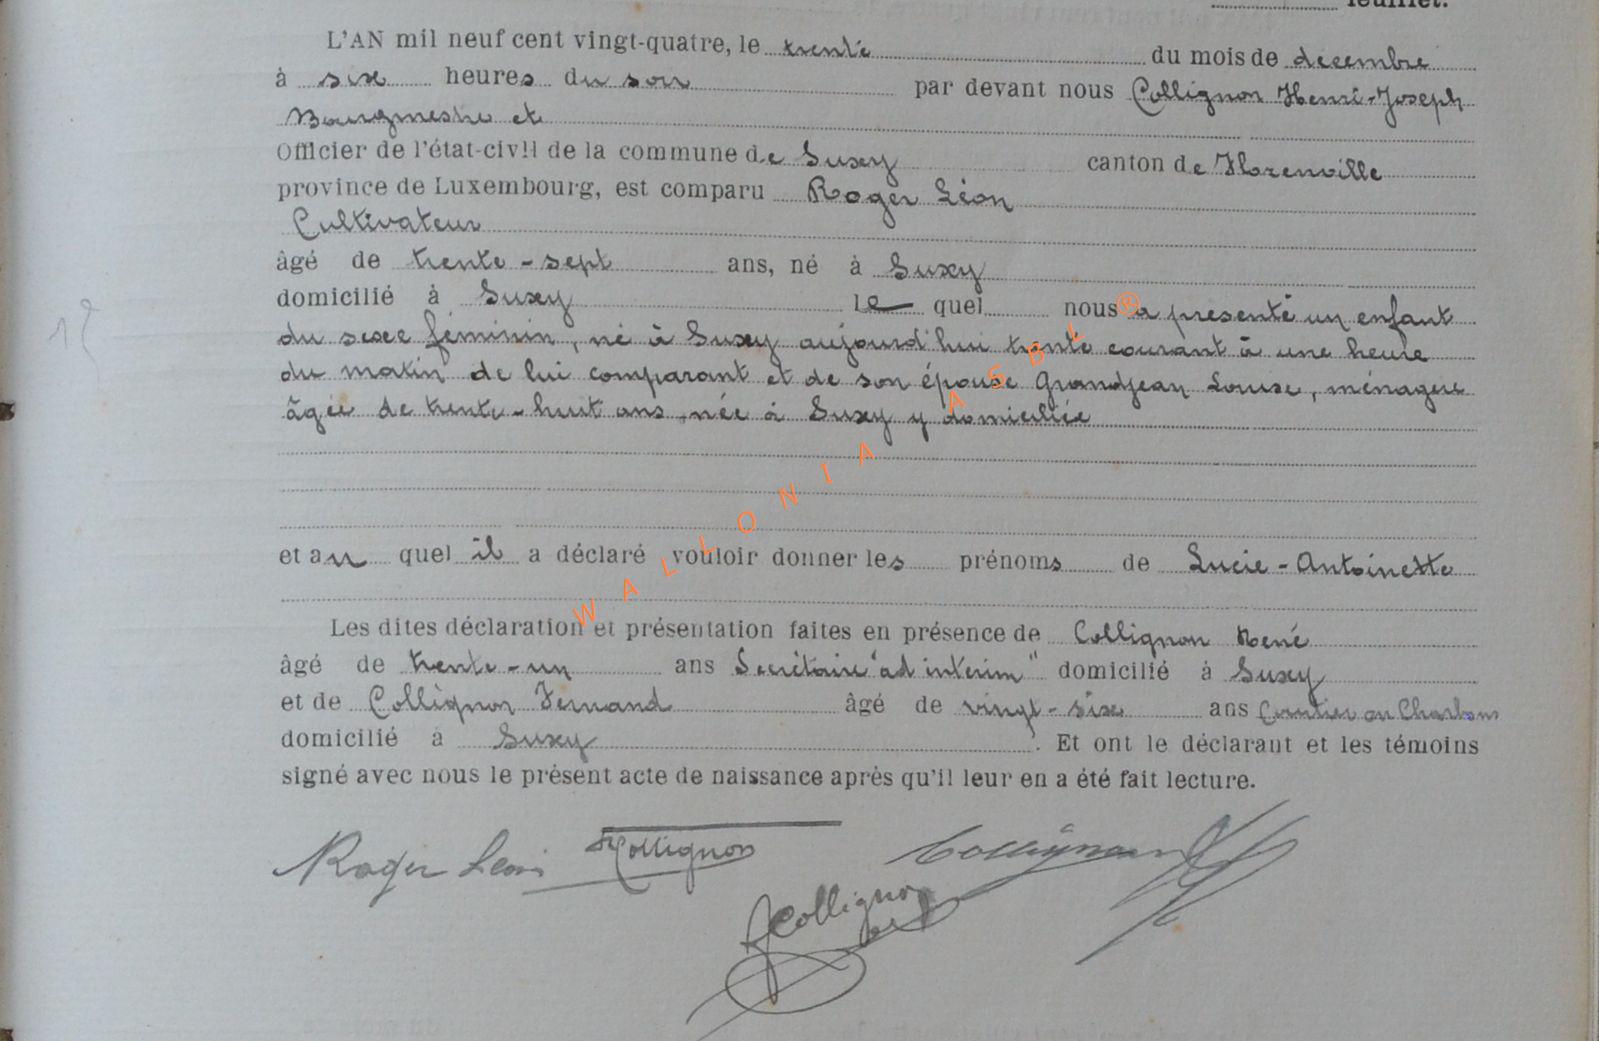 feuillet.
L'AN mil neuf cent vingt-quatre, le trente du mois de decembre
à six heures du soir par devant nous Collignon Henri-Joseph
Bourgmestre et
Officier de l'état-civil de la commune de Suxy canton de Florenville
province de Luxembourg, est comparu Roger Léon
Cultivateur
âgé de trente-sept ans, né à Suxy
domicilié à Suxy le quel nous a présenté un enfant
du sexe féminin, né à Suxy aujourd'hui trente courant à une heure
du matin de lui comparant et de son épouse Grandjean Louise, ménagère
âgée de trente-huit ans, née à Suxy y domiciliée
et au quel il a déclaré vouloir donner les prénoms de Lucie-Antoinette
Les dites déclaration et présentation faites en présence de Collignon René
âgé de trente-un ans Secrétaire "ad intérim" domicilié à Suxy
et de Collignon Fernand âgé de vingt-six ans Courtier en Charbons
domicilié à Suxy. Et ont le déclarant et les témoins
signé avec nous le présent acte de naissance après qu'il leur en a été fait lecture.
Roger Léon Collignon Collignon
FCollignon
WALLONIA ASBL®